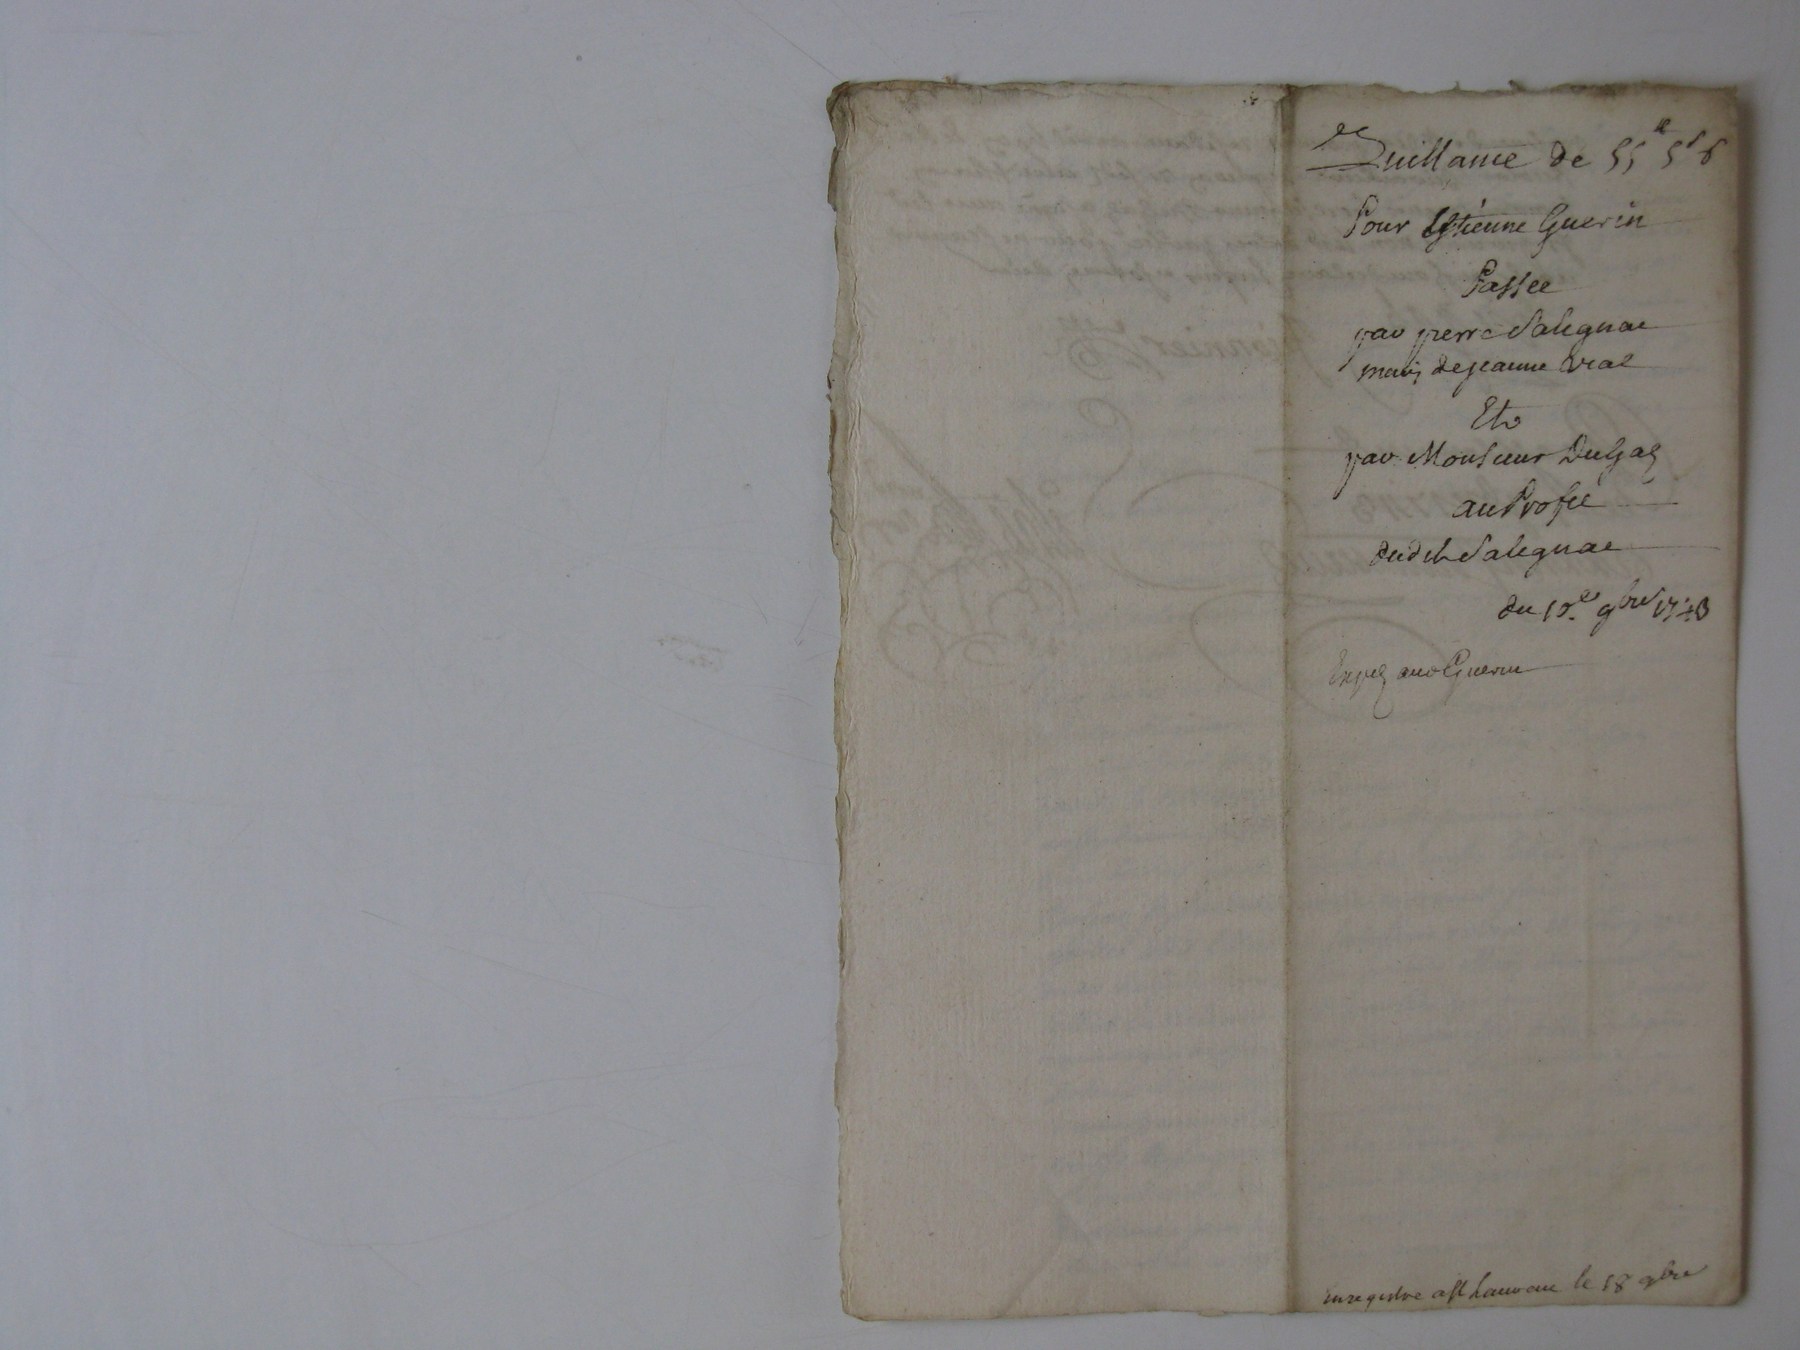 Quittance de 55# 5s 6
Pour Estienne Guerin
Passee
par pierre Salegnac
mary de jeanne Vral
Et
par Monsieur DuGas
au Profit
dudit Salegnac
du 9bre 1743
Exped audt Guerin
enregistre a St le 18 9bre